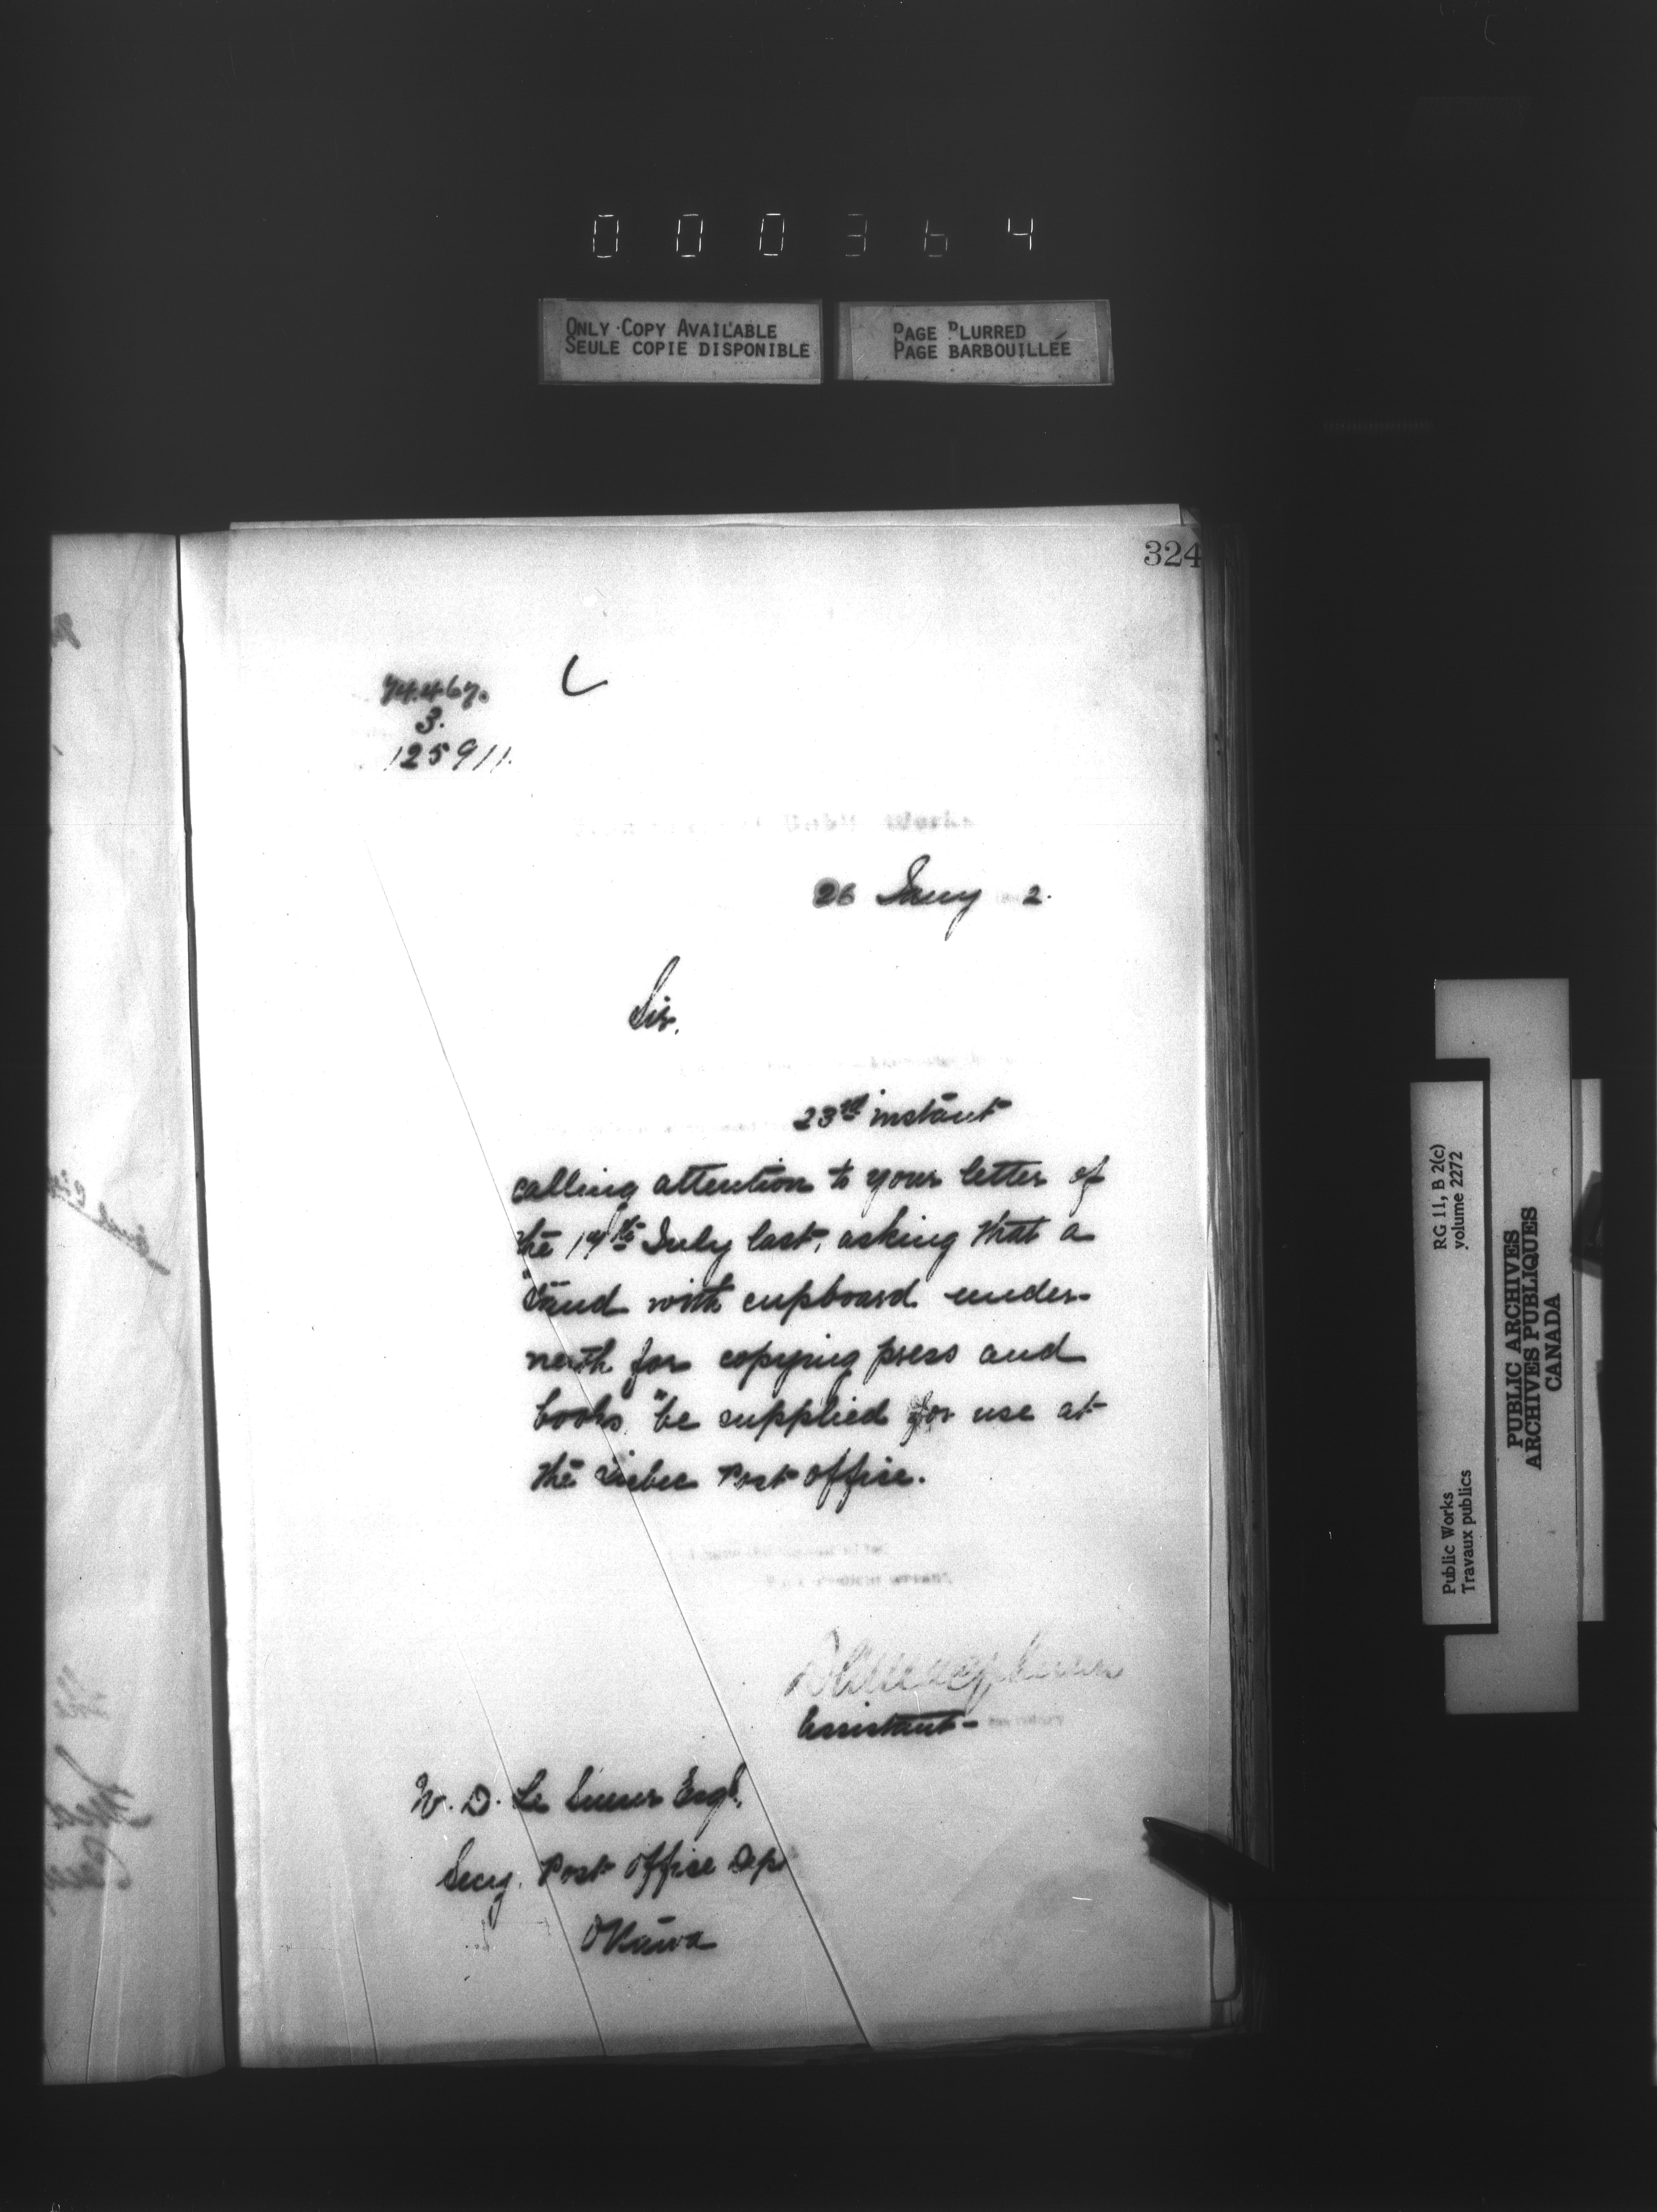 000364
ONLY COPY AVAILABLE
SEULE COPIE DISPONIBLE
PAGE BLURRED
PAGE BARBOUILLÉE
324
74.467.
3.
125911.
Public Works
26 Jany 2.
Sir,
23rd instant
calling attention to your letter of
the 14th July last, asking that a
"stand with cupboard under-
neath for copying press and
books" be supplied for use at
the Quebec Post office.
Assistant-
W. D. Le Sueur Esqr.
Secy. Post Office Dept
Ottawa
RG 11, B 2(c)
volume 2272
Public Works
Travaux publics
PUBLIC ARCHIVES
ARCHIVES PUBLIQUES
CANADA